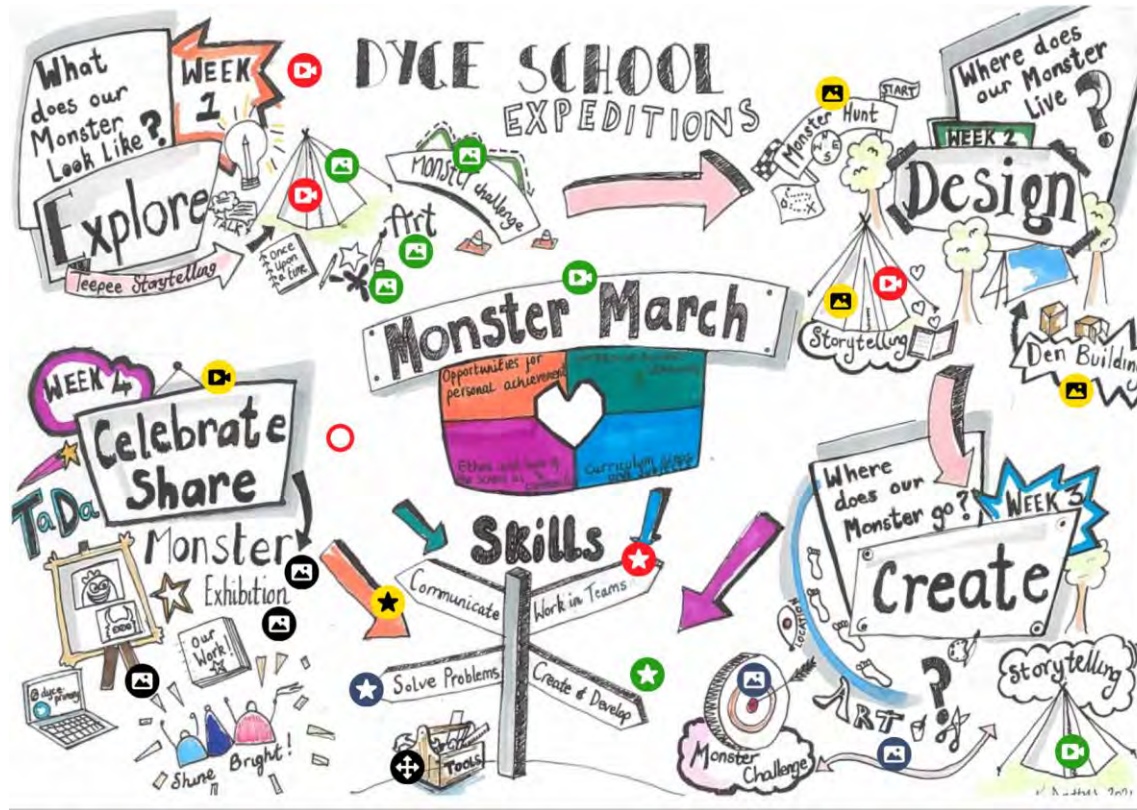 DYCE SCHOOL
EXPEDITIONS
What
does our
Monster
Look like?
WEEK
1
Explore
TALK!
Teepee Storytelling
Once
upon
a time
Art
Monster challenge
START
Monster Hunt
Where does
our Monster
Live?
WEEK 2
Design
Storytelling
Den Building
Monster March
Opportunities for
personal achievement
Curriculum areas
and subjects
WEEK 4
Celebrate
Share
TaDa
Monster
Exhibition
Our
Work!
@dyce
primary
Shine Bright!
Skills
Communicate
Work in Teams
Solve Problems
Create & Develop
TOOLS
Where
does our
Monster go?
WEEK 3
Create
LOCATION
ART
?
Monster
Challenge
Storytelling